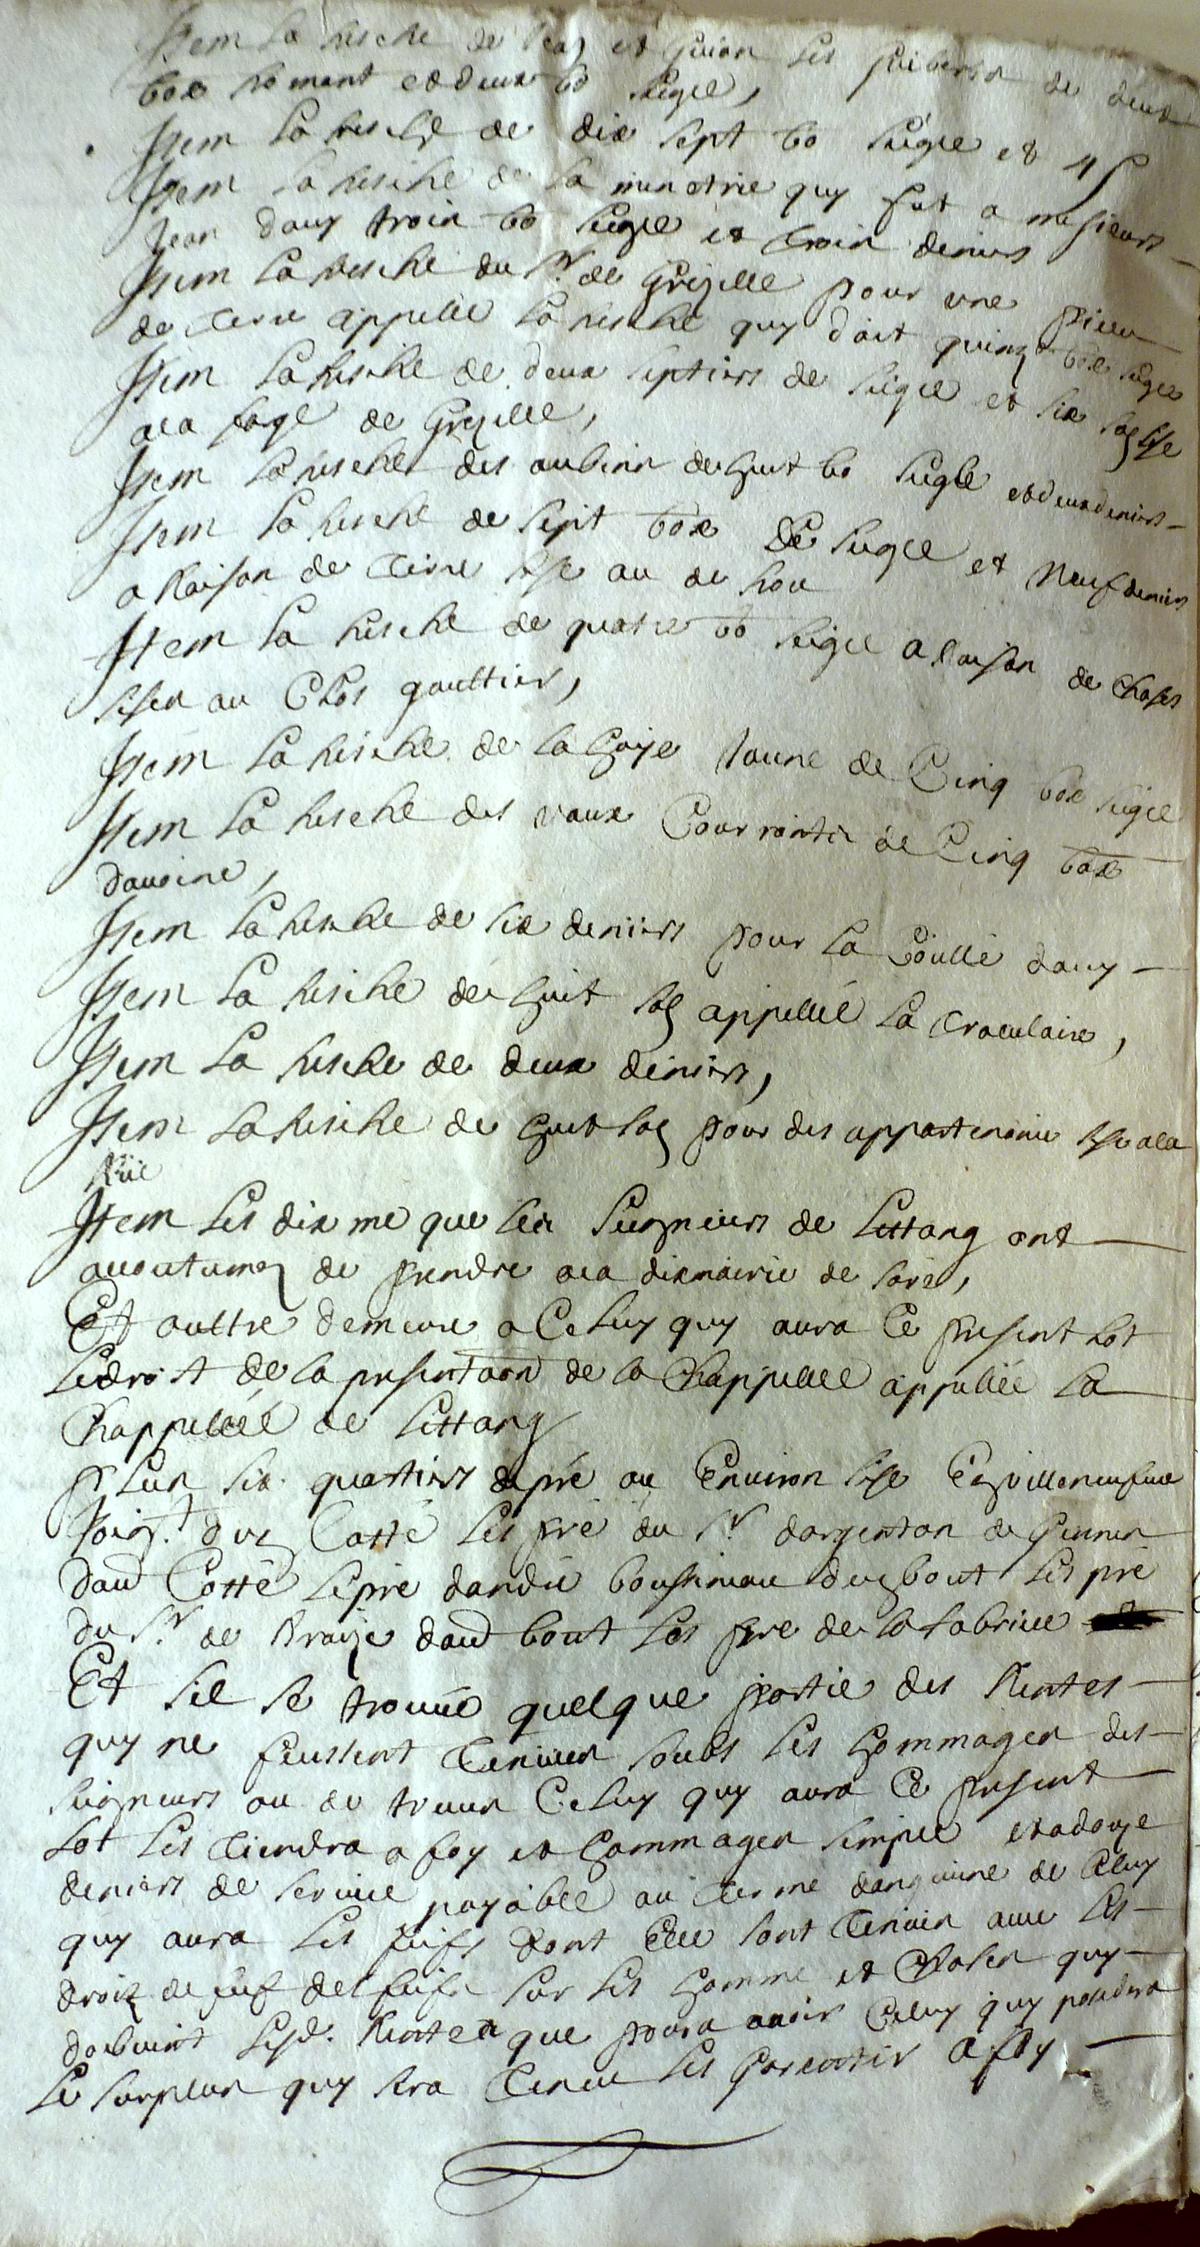 Item La fresche de Jean et Guion Les Guibersn de deux
box froment et deux bo seigle,
Item La fresche de dix sept bo seigle et 4 s
Item La fresche de La munetrie quy fut a messieurs
Jean Dauy trois bo seigle et trois deniers
Item La fresche du Sr. de Grezille pour une piece
de terre appellée La fresche quy doit quinze box seigle
Item La fresche de deux septiers de seigle et six solz sise
a La fage de Grezille,
Item La fresche des aubins de huit bo seigle et deux deniers
Item La fresche de sept box de seigle et Neuf deniers
a Raison de terre sise au de hou
Item La fresche de quatre bo seigle a Raison de choses
sises au Clos gaultier,
Item La fresche de La haye Jaune de Cinq box seigle
Item La fresche des vaux Courrontes de Cinq box
d'avoine,
Item La fresche de six deniers pour La Goullé dauy
Item La fresche de huit solz appellée La Craculaire,
Item La fresche de deux deniers,
Item La fresche de huit solz pour des appartenance sise a La
Rüe
Item Les dixme que Les Seigneurs de Lettang ont
accoutumez de prendre a La dixmairie de soré,
Et oultre demeure a Celuy quy aura Ce present Lot
Le droit de La presentaon de La Chappelle appellée La
Chappellé de Lettang
Plus six quartiers de pré ou Environ sise Ez villeneufve
Joigt. d'un Costé Les pré du Sr. dargenton de Gennes
daud Costé Le pré dandré boussineau dung bout Les pré
du Sr. de Braize daud bout Les pré de La fabrice
Et sil se trouve quelque partie des Rentes
quy ne feussent tenues soubs Les hommages des
seigneurs ou de treves Celuy quy aura Ce present
Lot Les tiendra a foy et hommages simple et a douze
deniers de service payable au terme dangevine de Celuy
quy aura Les fiefs dont Elle sont tenues avec Les
droiz de fief de fiefs sur Les homme et Choses quy
doibvent Lesd. Rentes que poura avoir Celuy quy prendra
Le surplus quy sera tenu Les Garentir a foy